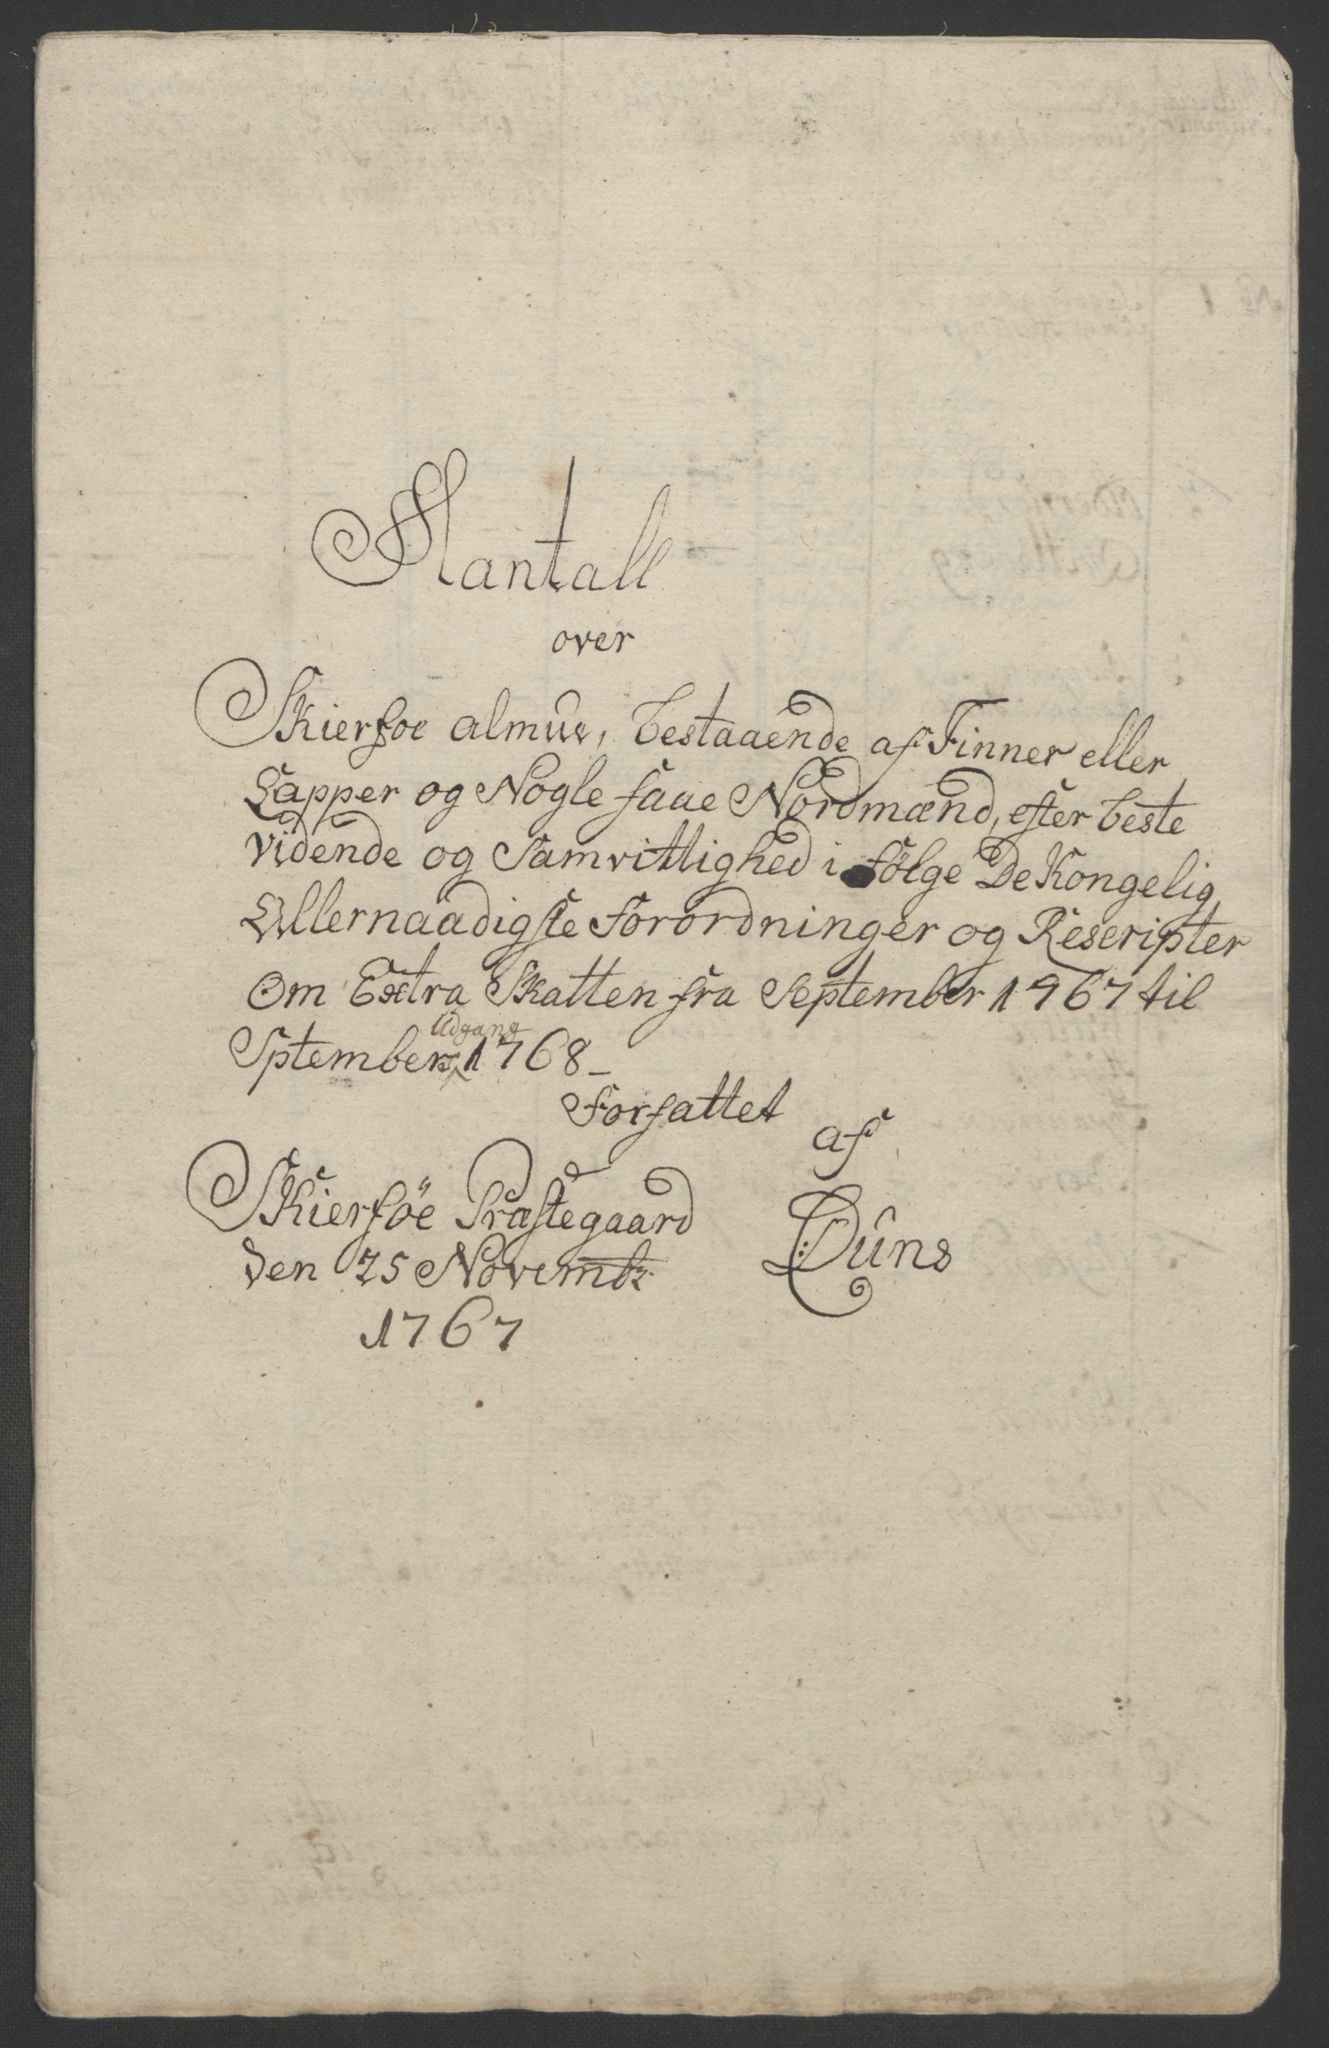 Mantall
over
Skierføe almue, bestaaende af Finner eller
Lapper og Nogle faae Nordmænd, efter beste
vidende og Samvittighed i følge De Kongelig
Allernaadigste Forordninger og Rescripter
Om Extra Skatten fra September 1767 til
Sptember Udgang 1768
Forfattet
af
Skierføe Præstegaard
den 25 Novembr
1767
Duns